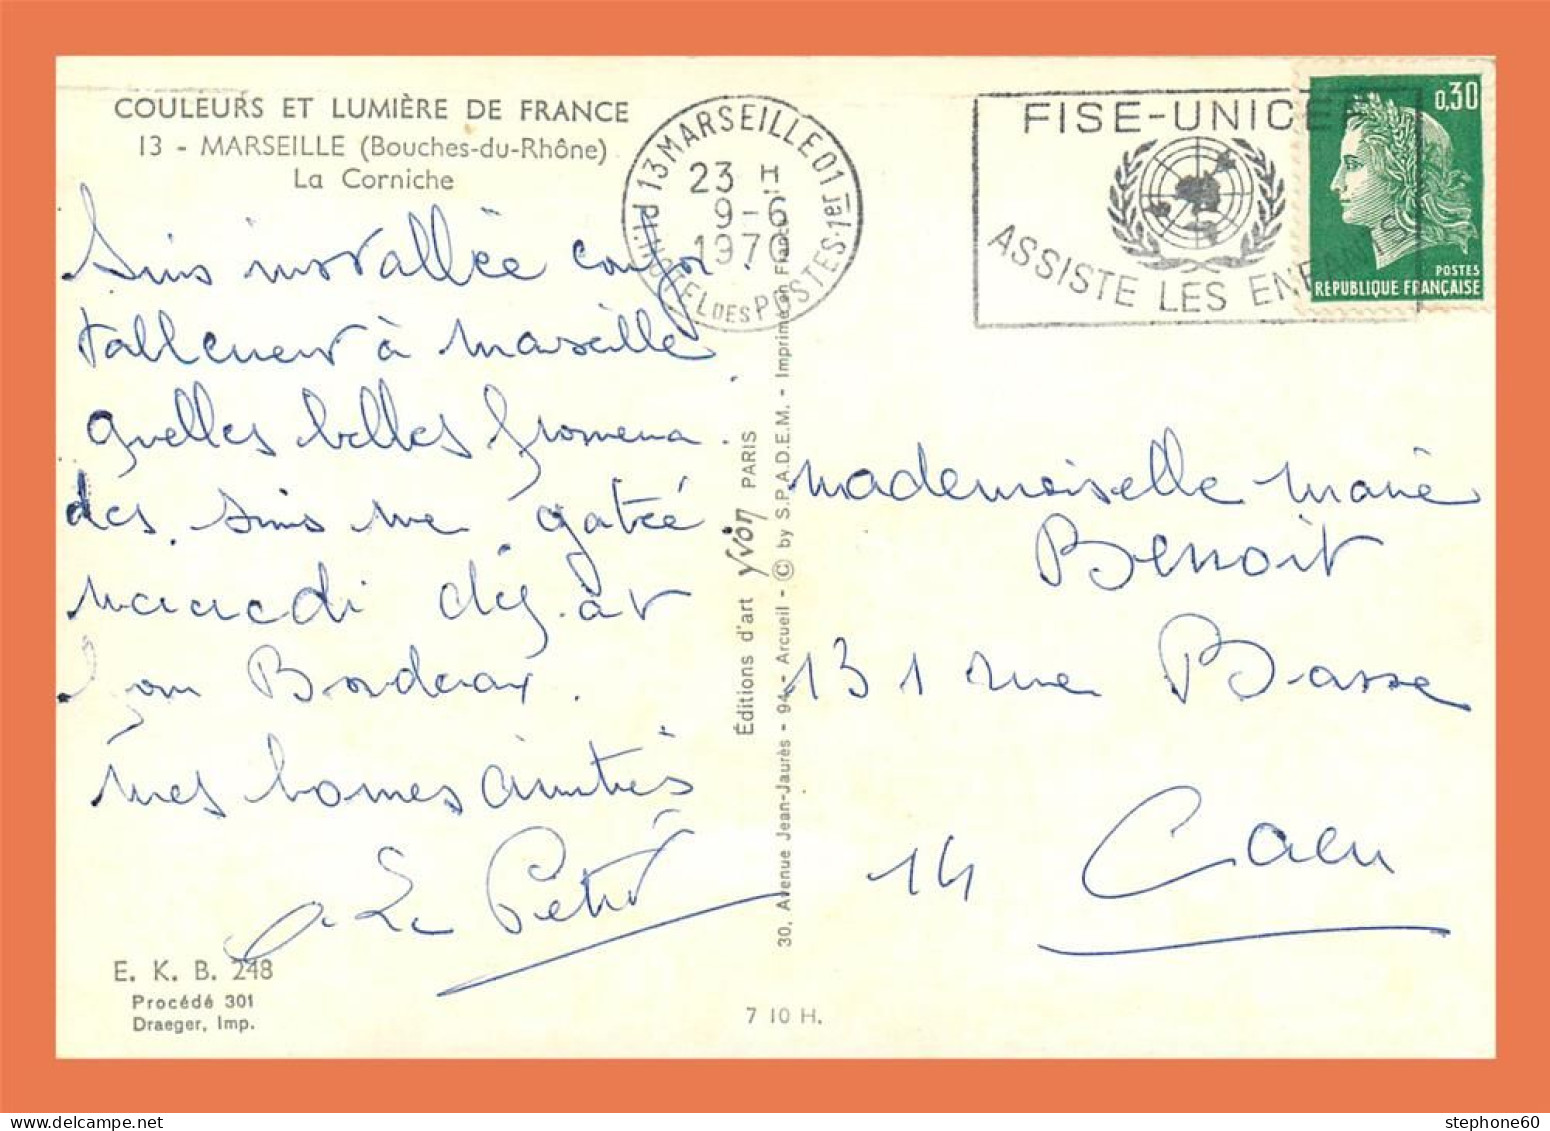 COULEURS ET LUMIÈRE DE FRANCE
13 - MARSEILLE (Bouches-du-Rhône)
La Corniche
13 MARSEILLE 01
23 H
9-6
1970
P.I. HOTEL DES POSTES. 1er
FISE-UNICEF
ASSISTE LES ENFANTS
0,30
POSTES
REPUBLIQUE FRANÇAISE
Suis installée confor.
tablement à Marseille
quelles belles promena.
des. Suis me gatée
mardi
Bordeaux.
mes bonnes amitiés
Le
E. K. B. 248
Procédé 301
Draeger, Imp.
Éditions d'art YVON PARIS
30, Avenue Jean-Jaurès - 94 - Arcueil - © by S.P.A.D.E.M. - Imprimé en France
7 10 H.
Mademoiselle Marie
Benoit
131 rue Basse
14 Caen
stephone60